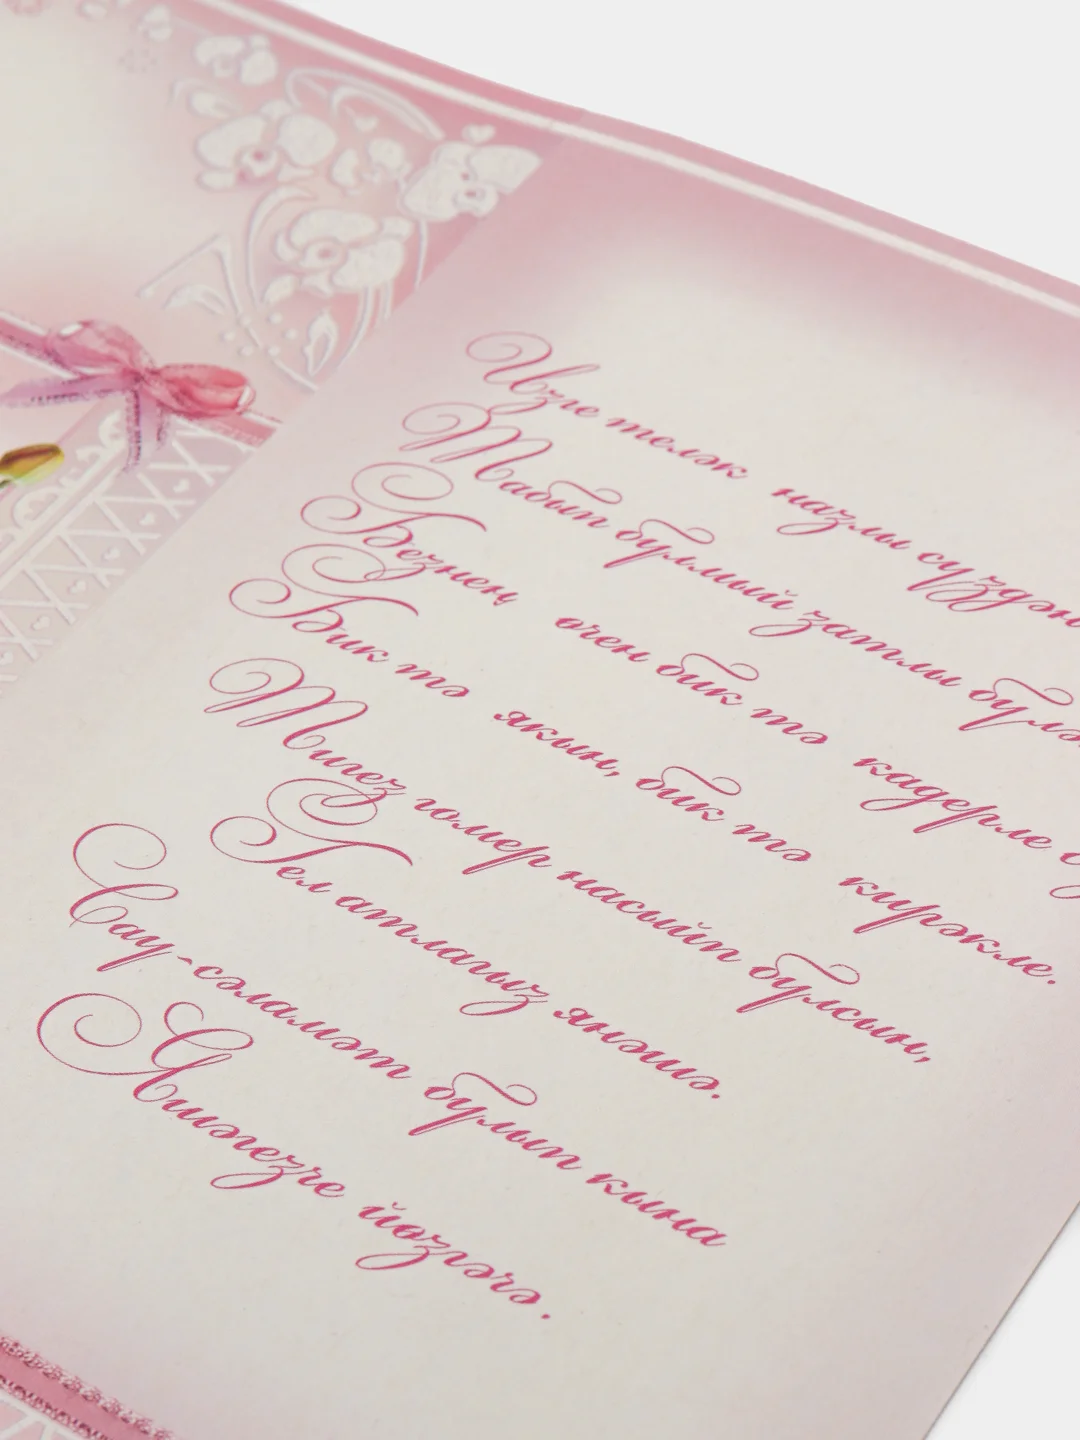 Изге теләк назлы сүздән
Табып булмый затлы бүлә
Безнең өчен бик тә кадерле
Бик тә якын, бик тә кирәкле.
Тигез гомер насыйп булсын,
Гел атлагыз янәшә.
Сау-сәламәт булып кына
Яшәгезче йөзгәчә.